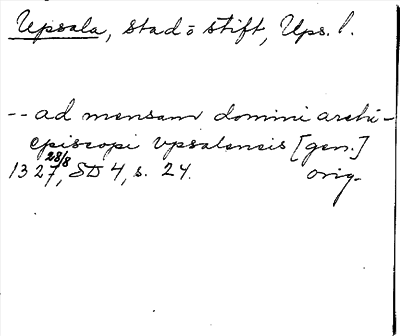 Upsala, stad o stift, Ups. l.
-- ad mensam domini archi-
episcopi vpsalensis [gen.]
1327 28/8, SD 4, s. 24. orig.